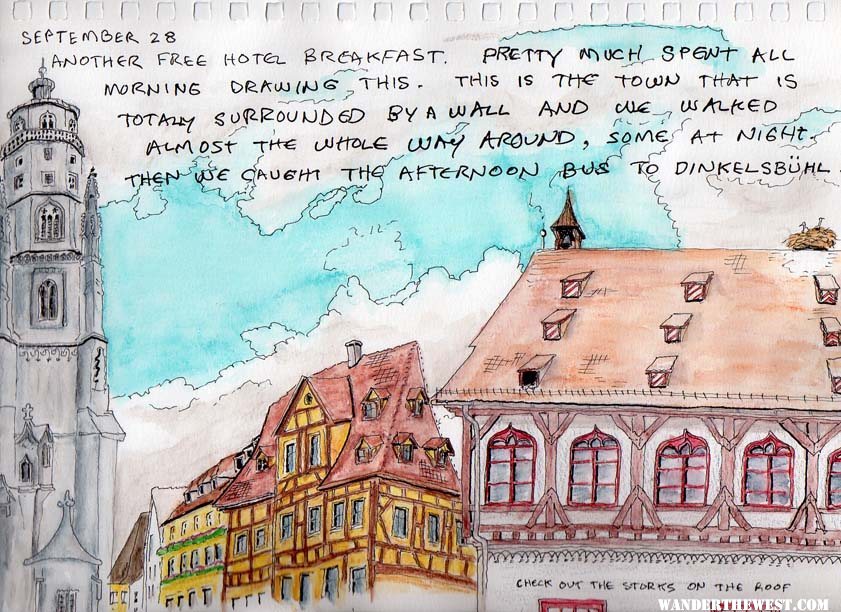 SEPTEMBER 28
ANOTHER FREE HOTEL BREAKFAST. PRETTY MUCH SPENT ALL
MORNING DRAWING THIS. THIS IS THE TOWN THAT IS
TOTALLY SURROUNDED BY A WALL AND WE WALKED
ALMOST THE WHOLE WAY AROUND, SOME AT NIGHT.
THEN WE CAUGHT THE AFTERNOON BUS TO DINKELSBÜHL.
CHECK OUT THE STORKS ON THE ROOF
WANDERTHEWEST.COM